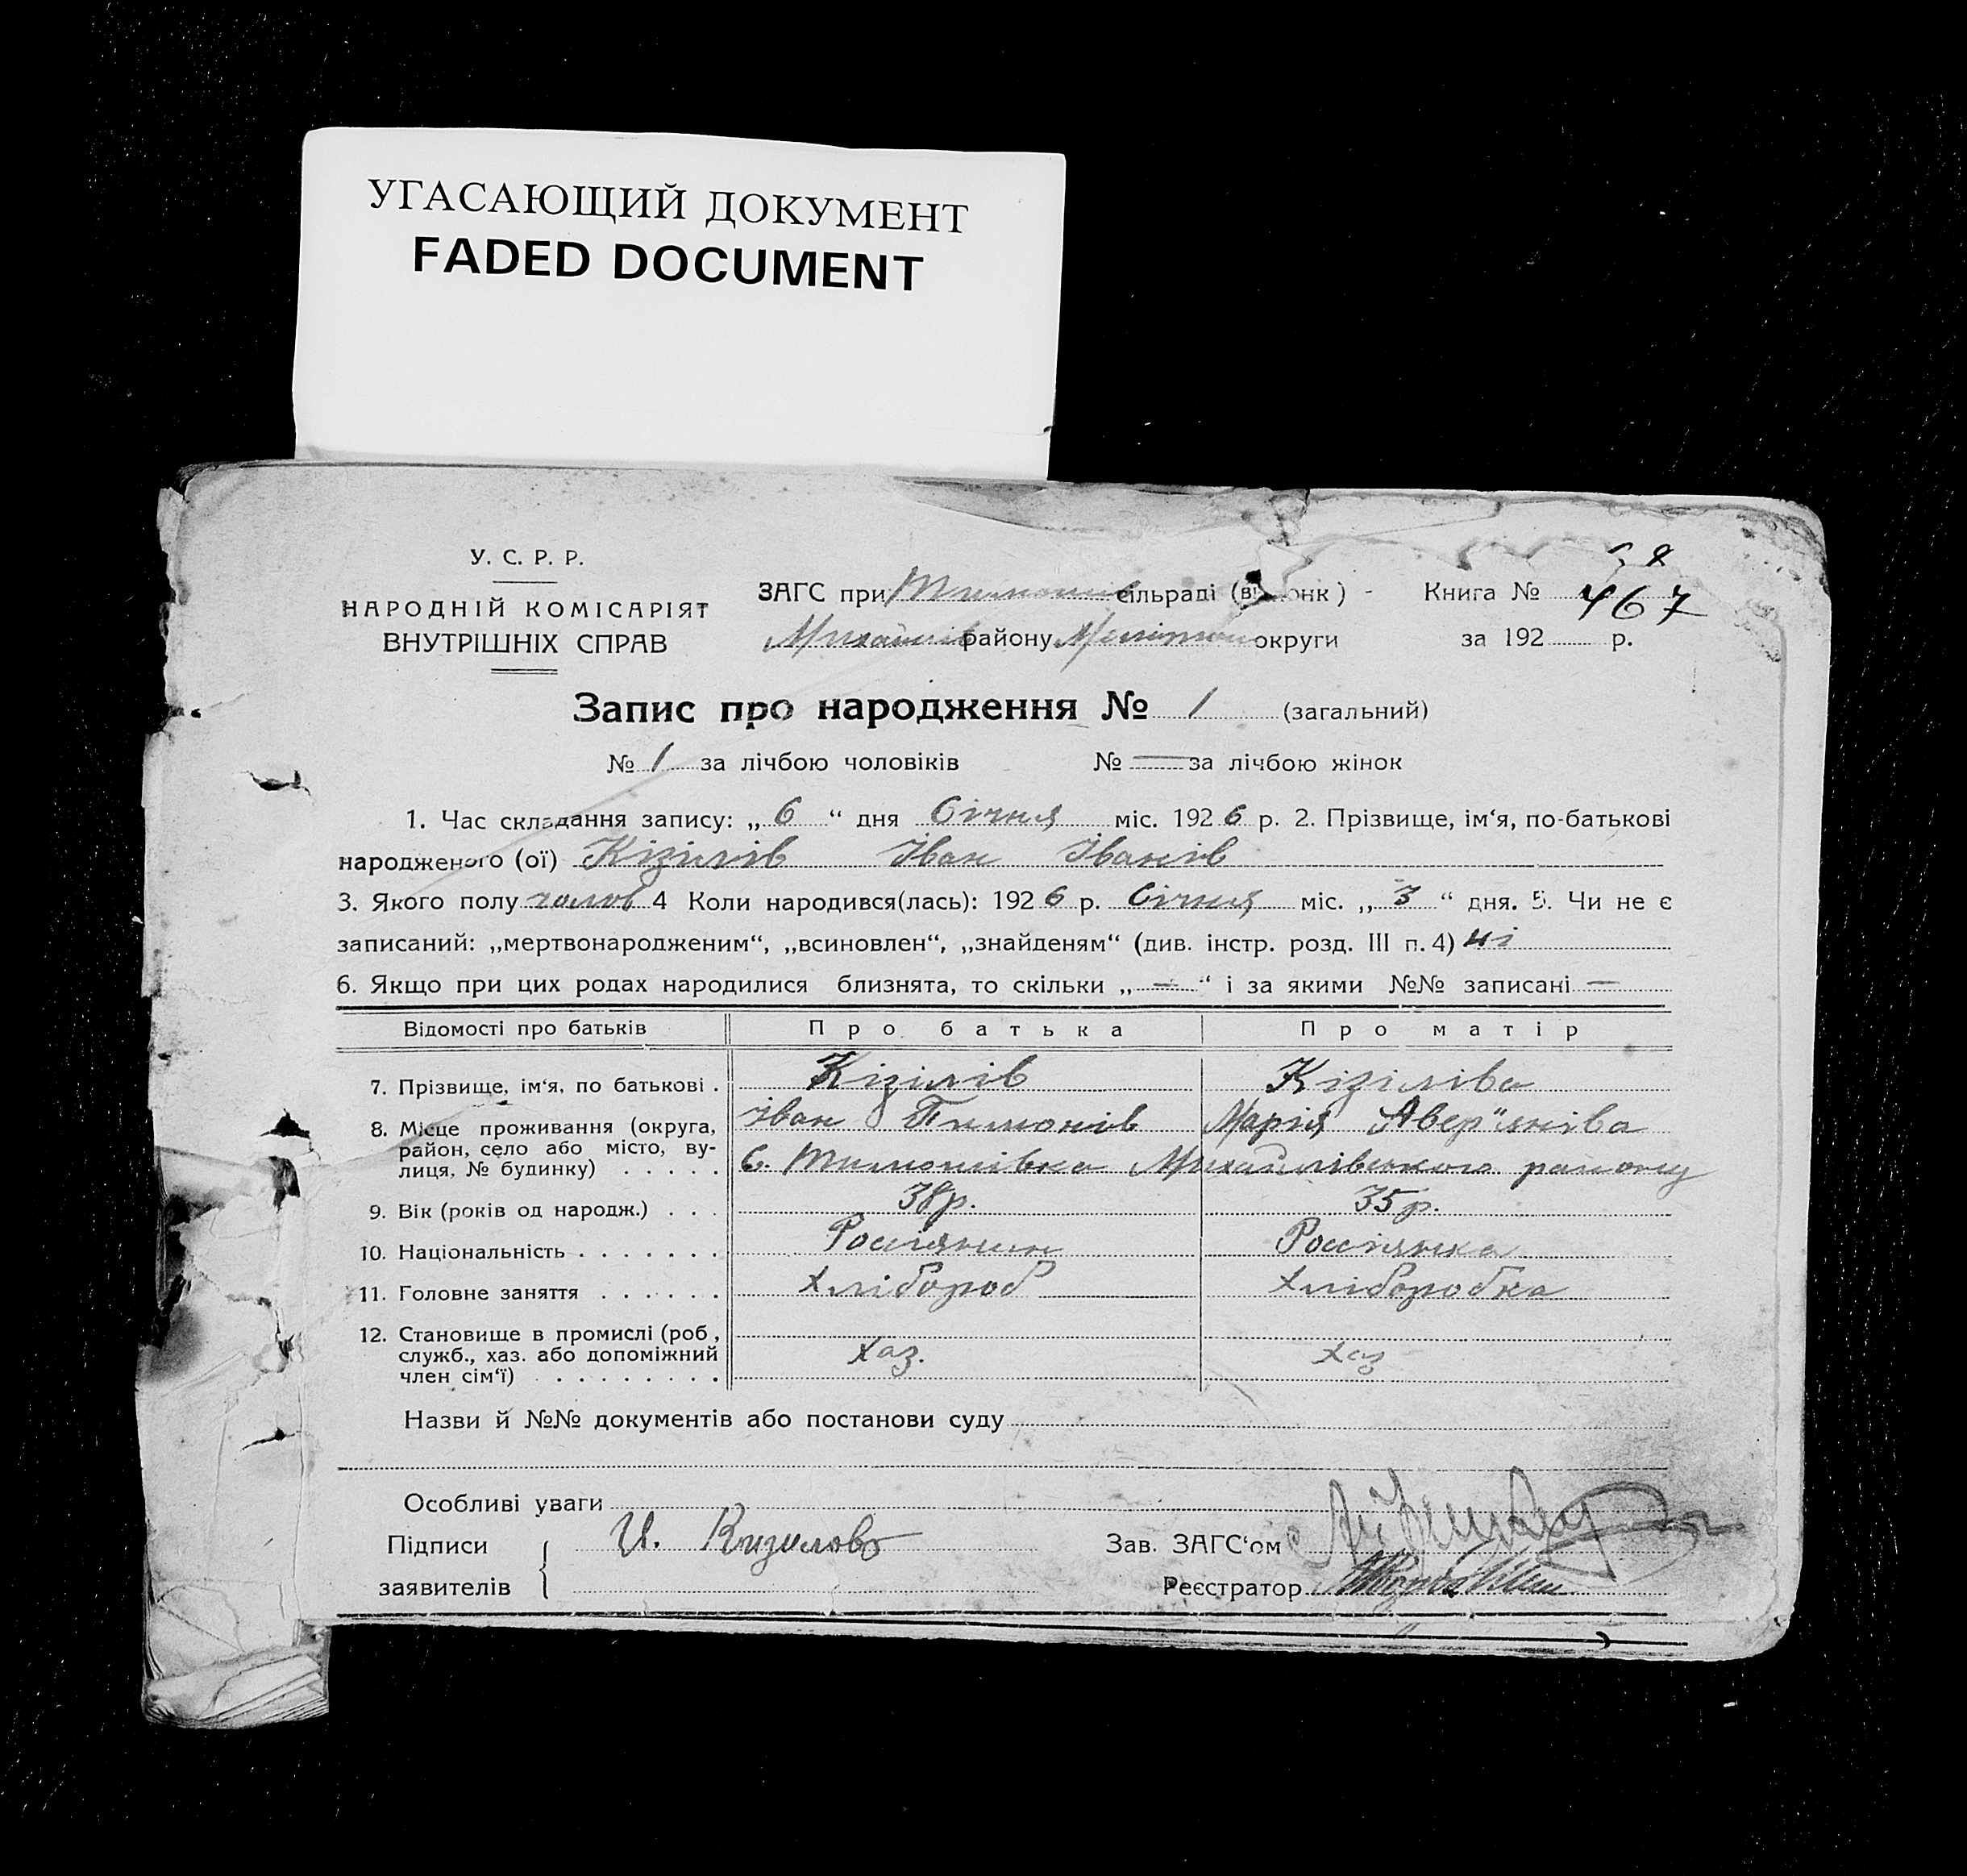 УГАСАЮЩИЙ ДОКУМЕНТ
FADED DOCUMENT
У. С. Р. Р.
НАРОДНІЙ КОМІСАРІЯТ
ВНУТРІШНІХ СПРАВ
ЗАГС при сільраді
Михайлів району Мелітоп округи
Книга № 467
за 192 р.
Запис про народження № 1 (загальний)
№ 1 за лічбою чоловіків № — за лічбою жінок
1. Час складання запису: „ 6 “ дня Січня міс. 1926 р. 2. Прізвище, ім‘я, по-батькові
народженого (ої) Кізілів Іван Іванів
3. Якого полу чолов 4 Коли народився(лась): 1926 р. Січня міс. „ 3 “ дня. 5. Чи не є
записаний: „мертвонародженим“, „всиновлен“, „знайденям“ (див. інстр. розд. III п. 4) ні
6. Якщо при цих родах народилися близнята, то скільки „ — “ і за якими №№ записані —
Відомості про батьків Про батька Про матір
7. Прізвище, ім‘я, по батькові . Кізілів Кізіліва
Іван Марія Авер"яніва
8. Місце проживання (округа,
район, село або місто, ву-
лиця, № будинку) . . . . . С. Тимошівка Михайлівського району
9. Вік (років од народж.) . . . 38р. 35р.
10. Національність . . . . . . . Россіянин Россіянка
11. Головне заняття . . . . . . Хлібороб Хліборобка
12. Становище в промислі (роб.,
служб., хаз. або допоміжний
член сім‘ї) . . . . . . . . . хаз. хаз
Назви й №№ документів або постанови суду
Особливі уваги
Підписи
заявителів
И. Кизилов
Зав. ЗАГС‘ом
Реєстратор